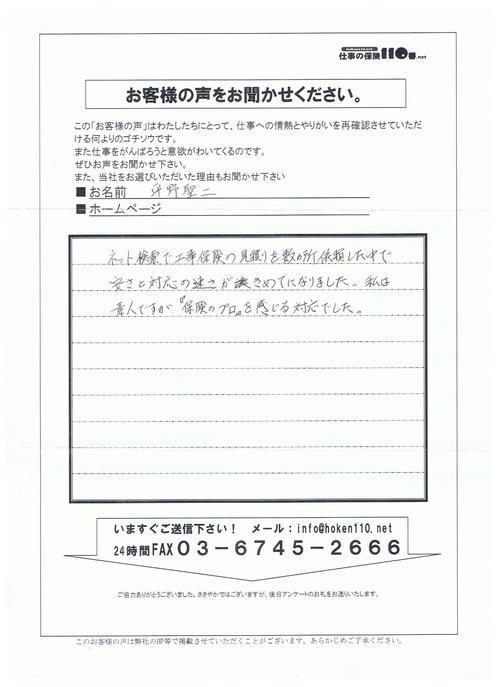 仕事の保険110番.net
お客様の声をお聞かせください。
この「お客様の声」はわたしたちにとって、仕事への情熱とやりがいを再確認させていただ
ける何よりのゴチソウです。
また仕事をがんばろうと意欲がわいてくるのです。
ぜひお声をお聞かせ下さい。
また、当社をお選びいただいた理由もお聞かせ下さい
■お名前 野聖二
■ホームページ
ネット検索で工事保険の見積りを数か所依頼した中で
安さと対応の速さがきめてになりました。私は
素人ですが『保険のプロ』を感じる対応でした。
いますぐご送信下さい！ メール：info@hoken110.net
24時間FAX 03-6745-2666
ご協力ありがとうございました。ささやかではございますが、後日アンケートのお礼をお送りいたします。
このお客様の声は弊社のHP等で掲載させていただくことがございます。あらかじめご了承ください。